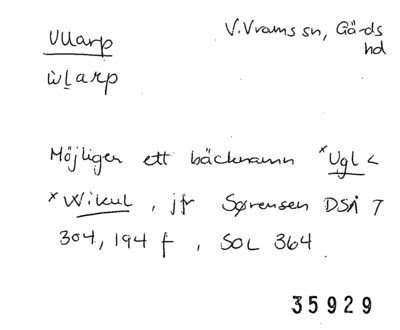 Ullarp
V.Vrams sn, Gärds
hd
ùl̨arp
Möjligen ett bäcknamn *Ugl <
*Wikul, jfr Sørensen DSÅ 7
304, 194 f, SOL 364.
35929